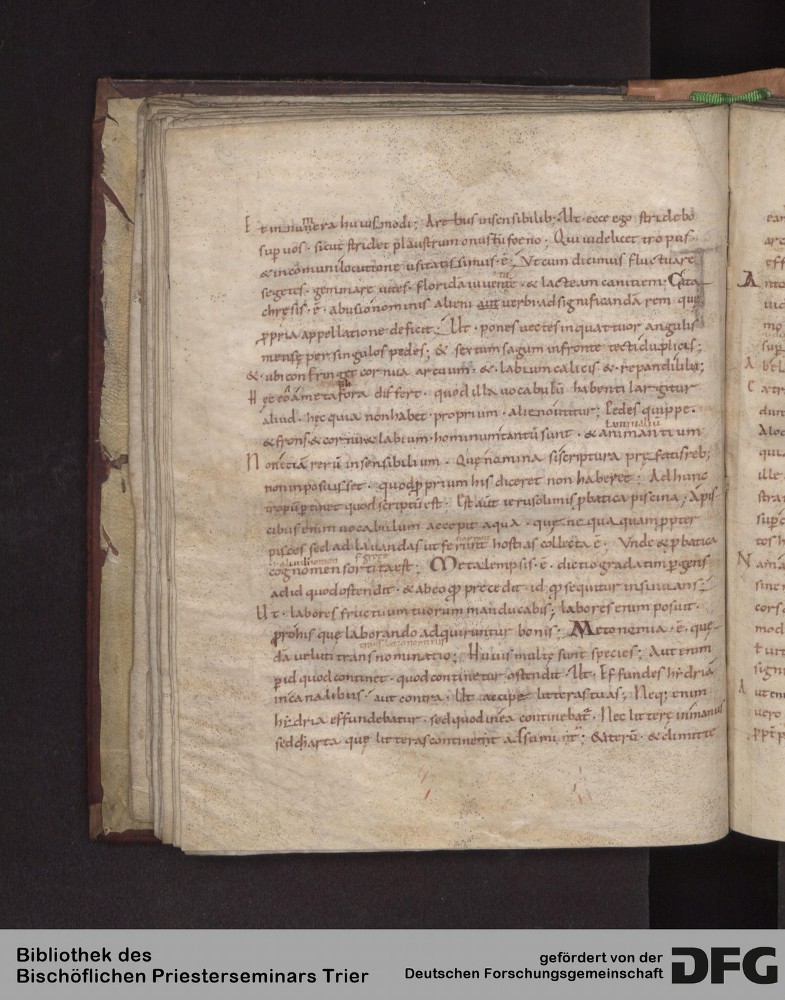 Et innumera huiusmodi; A re bus insensibilib; Ut· ecce ego stridebo
sup uos· sicut stridet plaustrum onustū foeno; Qui uidelicet tropus·
& in comuni locutione usitatissimus· ē; Ut cum dicimus fluctuare
segetes· gemmare uites· florida iuuente· & lacteam canitiem; Cata
chresis· ē· abusio nominis alieni aut uerbi ad significandā rem· quę
ppria appellatione deficit; Ut· pones uectes in quattuor angulis
mensę per singulos pedes; & sextum sagum in fronte tecti duplicis;
& ubi confringet cornua arcuum· & labium calicis & repandi lilii;
Hęc eō a metafora differt· quod illa uocabulū habenti largitur
aliud· hęc quia non habet proprium· alieno utitur; Pedes quippe·
& frons & cornu & labium· hominum tantū sunt· & animantium
Non etiā rerū insensibilium· Quę nomina si scriptura pręfatis reb;
non imposuisset· quod pprium his diceret non haberet; Ad hunc
tropū ptinet quod scriptū est· Est aūt ierusolimis pbatica piscina; A pis
cibus enim uocabulum accepit aqua· quę ne quaquam ppter
pisces sed ad lauandas ut ferunt hostias collecta ē· Unde & pbatica
cognomen sortita est; Metalempsis· ē· dictio gradatim pgens
ad id quod ostendit· & ab eo qđ precedit id qđ sequitur insinuans;
Ut· labores fructuum tuorum manducabis; labores enim posuit·
pro his quę laborando adquiruntur bonis; Metonomia· ē· quę
dā ueluti transnominatio; Huius multę sunt species; Aut enim
p id quod continet· quod continetur ostendit· Ut· Effundes hydriā
in canalibus· aut contra· Ut· accipe litteras tuas; Neq; enim
hydria effundebatur· sed quod in ea continebat· Nec litterę in manus
sed charta quę litteras continent adsumunt; & iterū· & dimitte
Bibliothek des
Bischöflichen Priesterseminars Trier
gefördert von der
Deutschen Forschungsgemeinschaft
DFG